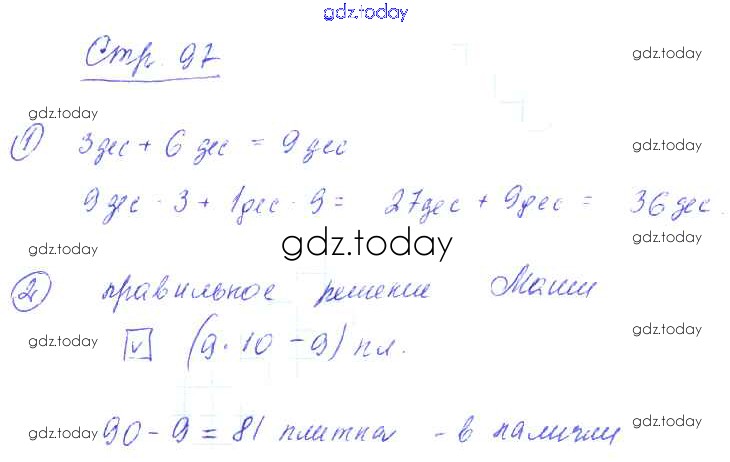 gdz.today
Стр. 97
gdz.today
gdz.today
① 3дес + 6 дес = 9 дес
gdz.today
9 дес · 3 + 1дес · 9 = 27дес + 9дес = 36 дес.
gdz.today
gdz.today
gdz.today
② правильное решение Маши
gdz.today
gdz.today
☑ (9·10 - 9) пл.
gdz.today
90 - 9 = 81 плитка - в наличии
gdz.today